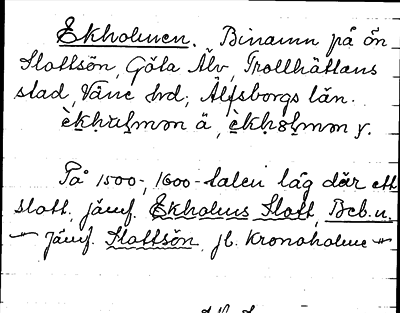 Ekholmen. Binamn på ön
Slottsön, Göta Älv, Trollhättans
stad, Väne hd, Älfsborgs län.
På 1500-, 1600-talen låg där ett
slott, jämf. Ekholms Slott, Beb.n.
jämf. Slottsön, jf. Kronoholme